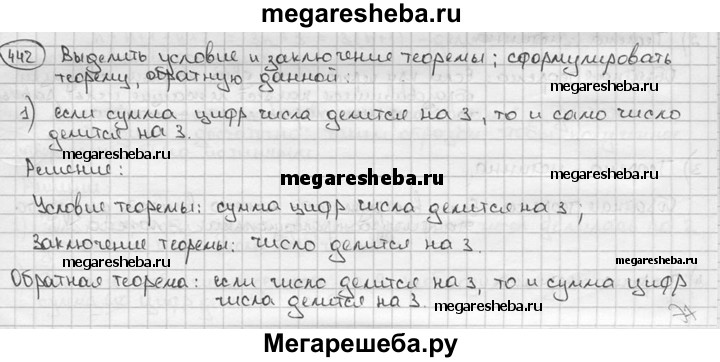 megaresheba.ru
442 Выделить условие и заключение теоремы; сформулировать
теорему, обратную данной:
megaresheba.ru
1) если сумма цифр числа делится на 3, то и само число
делится на 3.
megaresheba.ru
megaresheba.ru
Решение:
megaresheba.ru
Условие теоремы: сумма цифр числа делится на 3;
Заключение теоремы: число делится на 3.
megaresheba.ru
Обратная теорема: если число делится на 3, то и сумма цифр
числа делится на 3.
megaresheba.ru
megaresheba.ru
Мегарешеба.ру